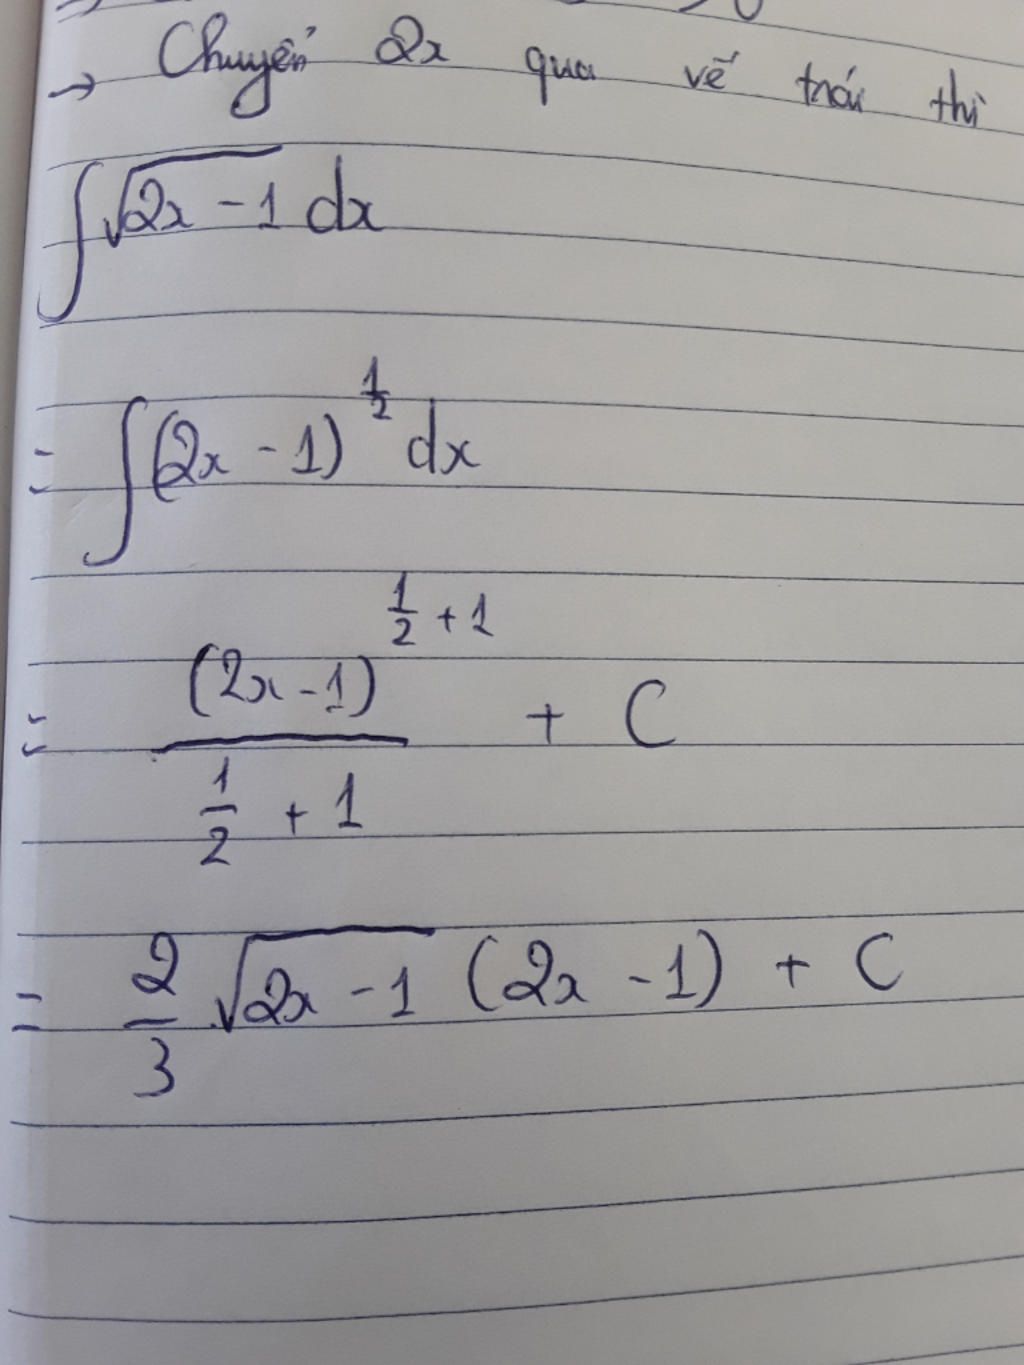 → Chuyển 2x qua vế trái thì
∫√(2x - 1) dx
= ∫(2x - 1)^(1/2) dx
= (2x - 1)^(1/2 + 1) / (1/2 + 1) + C
= 2/3 √(2x - 1) (2x - 1) + C